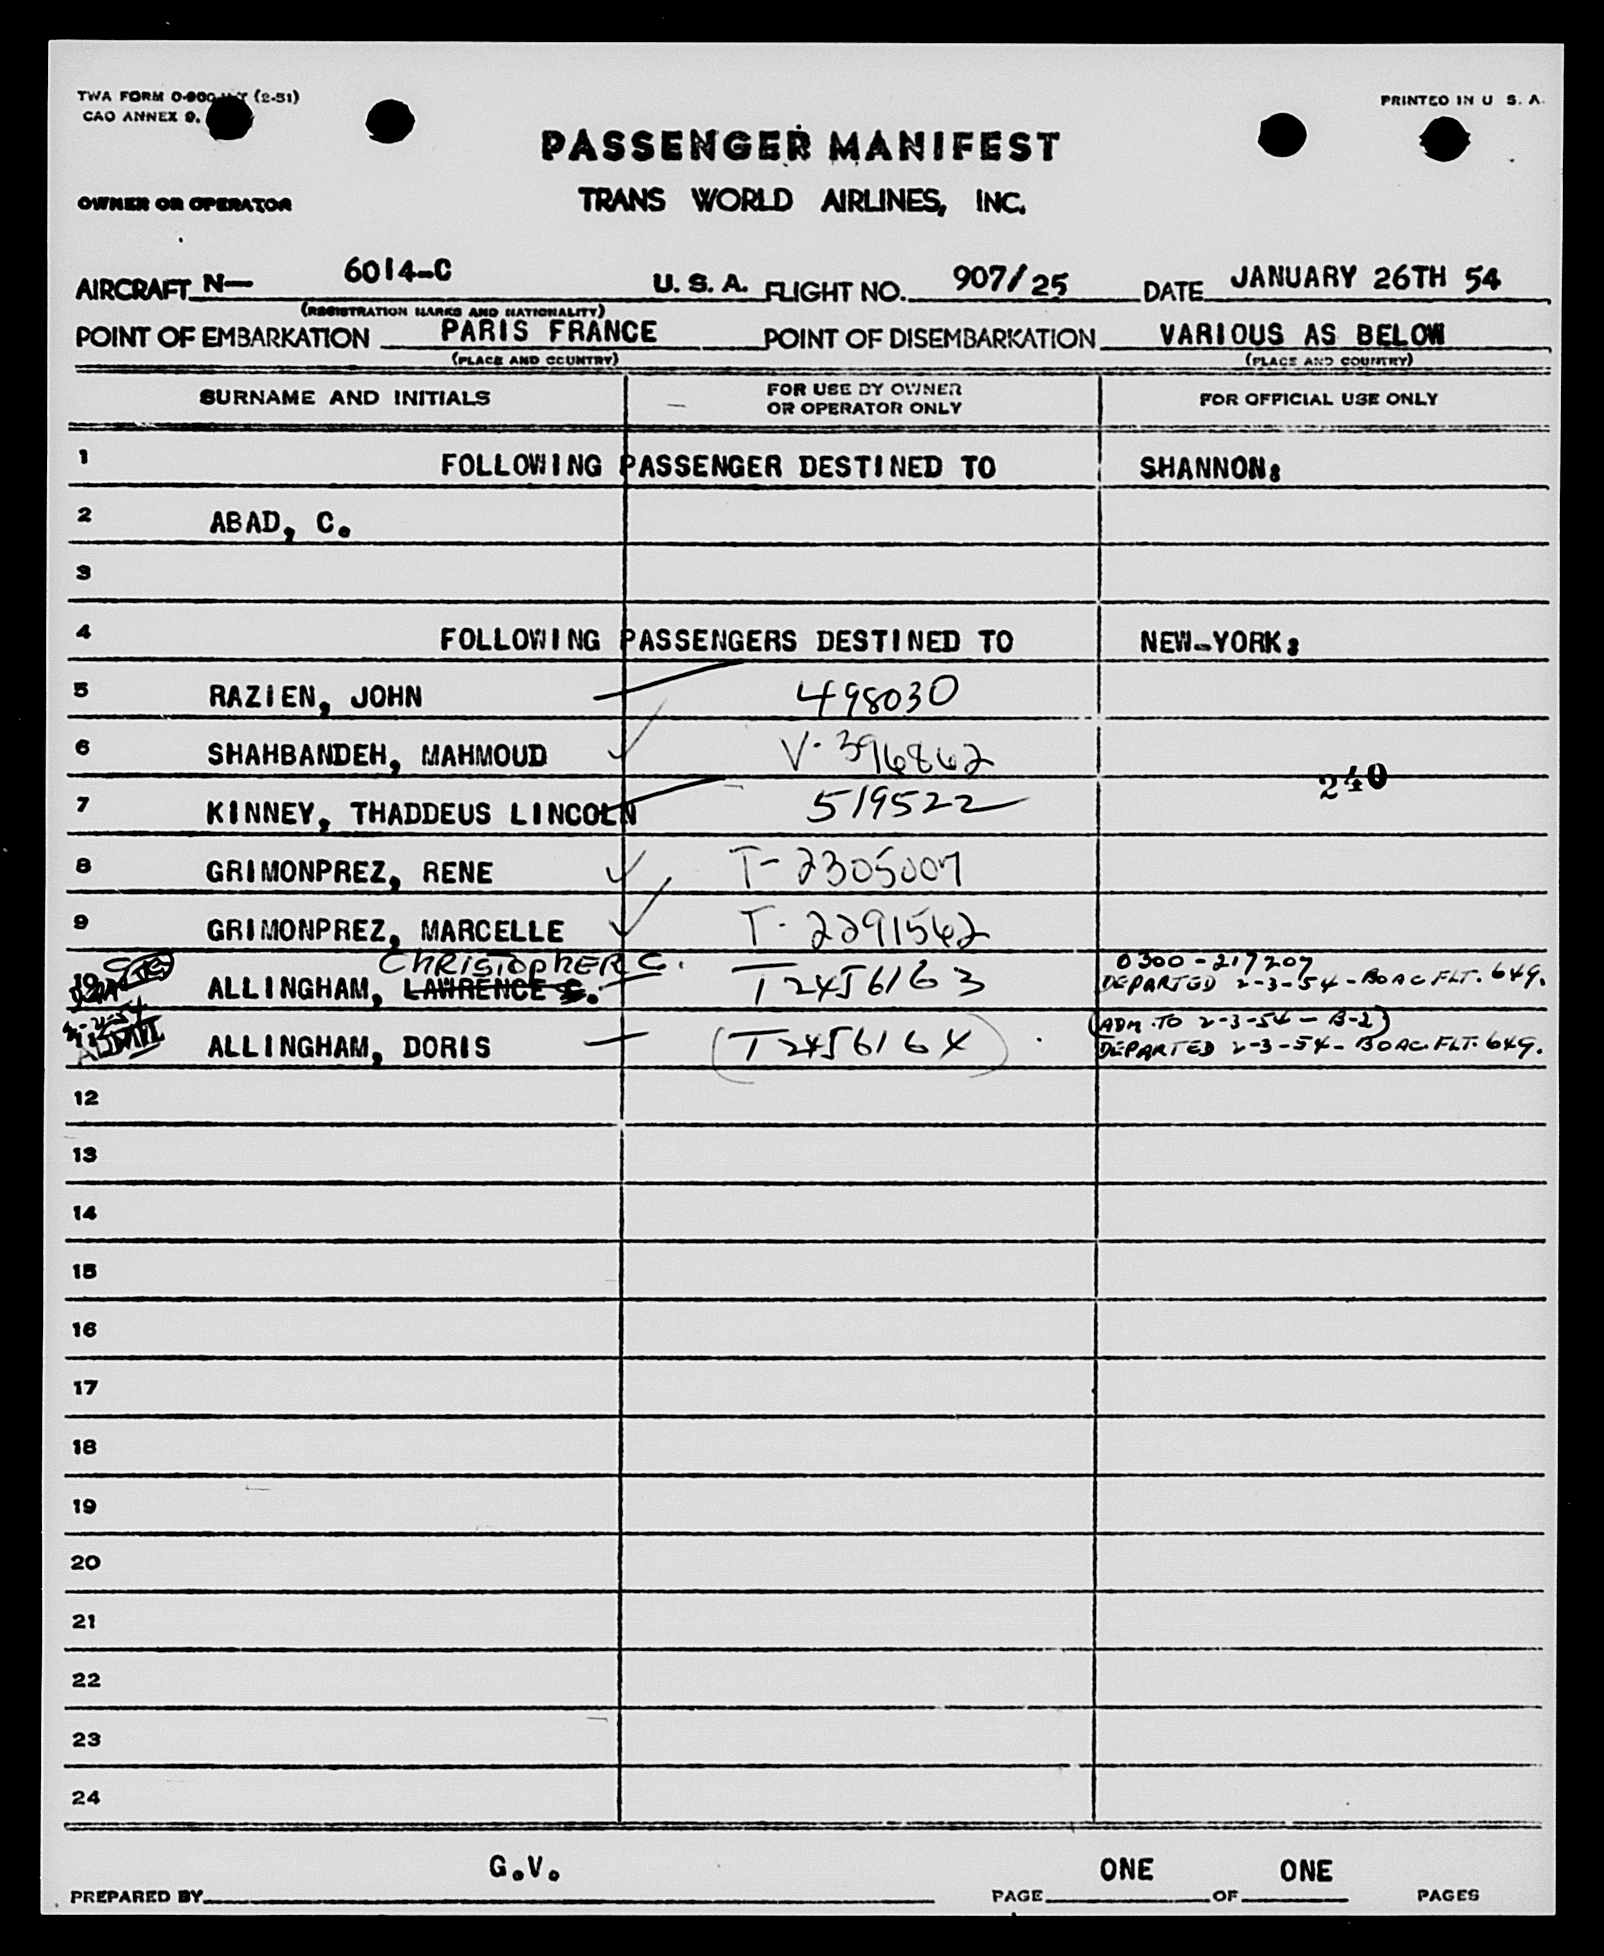 TWA FORM 0-900 (2-51)
PRINTED IN U S. A.
CAO ANNEX 9.
PASSENGER MANIFEST
OWNER OR OPERATOR
TRANS WORLD AIRLINES, INC.
AIRCRAFT N— 6014-C U. S. A. FLIGHT NO. 907/25 DATE JANUARY 26TH 54
(REGISTRATION MARKS AND NATIONALITY)
POINT OF EMBARKATION PARIS FRANCE POINT OF DISEMBARKATION VARIOUS AS BELOW
(PLACE AND COUNTRY) (PLACE AND COUNTRY)
SURNAME AND INITIALS FOR USE BY OWNER OR OPERATOR ONLY FOR OFFICIAL USE ONLY
1 FOLLOWING PASSENGER DESTINED TO SHANNON:
2 ABAD, C.
3
4 FOLLOWING PASSENGERS DESTINED TO NEW-YORK:
5 RAZIEN, JOHN 498030
6 SHAHBANDEH, MAHMOUD V-396862
240
7 KINNEY, THADDEUS LINCOLN 519522
8 GRIMONPREZ, RENE T-2305007
9 GRIMONPREZ, MARCELLE T-2291562
CHRISTOPHER C. 0300-217207
10 ALLINGHAM, LAWRENCE C. T2456163 DEPARTED 2-3-54-BOAC FLT. 649.
(ADM. TO 2-3-54-B-2)
ADMIT ALLINGHAM, DORIS (T2456164) DEPARTED 2-3-54-BOAC. FLT. 649.
12
13
14
15
16
17
18
19
20
21
22
23
24
G.V. ONE ONE
PREPARED BY PAGE OF PAGES